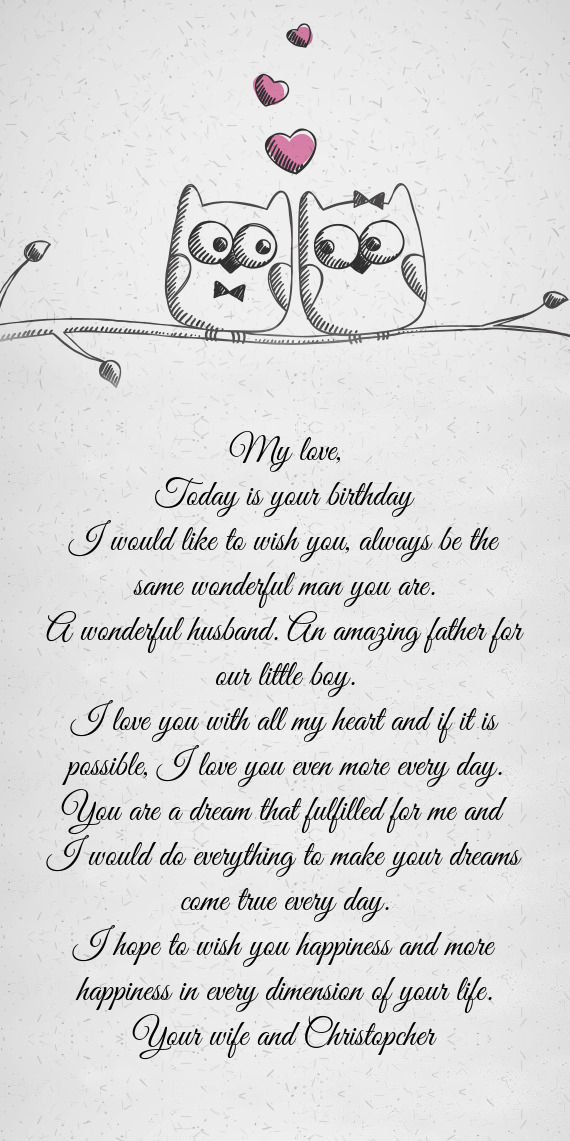 My love,
Today is your birthday
I would like to wish you, always be the
same wonderful man you are.
A wonderful husband. An amazing father for
our little boy.
I love you with all my heart and if it is
possible, I love you even more every day.
You are a dream that fulfilled for me and
I would do everything to make your dreams
come true every day.
I hope to wish you happiness and more
happiness in every dimension of your life.
Your wife and Christopcher